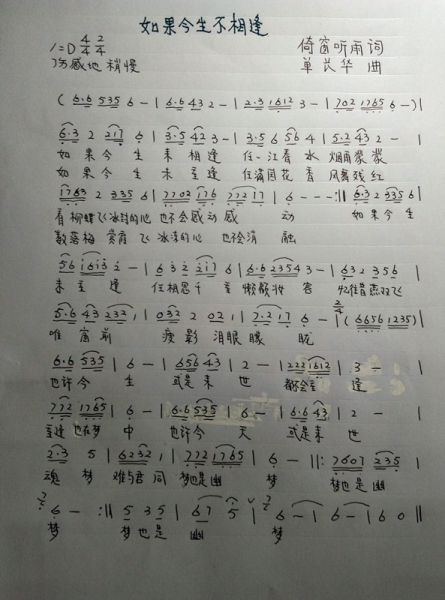 如果今生不相逢
1=D 4/4 2/4 倚窗听雨 词
伤感地 稍慢 单 华 曲
( 6·6 535 6 - | 6·6 43 2 - | 2·3 1612 3 - | 702 1765 6 - ) |
6·3 2 217 6 | 3·5 42 3 - | 3·5 6 56 4 | 5·2 43 2 - |
如果今生未相逢 任一江春水烟雨蒙蒙
如果今生未重逢 任满园花香风舞残红
1763 2 335 6 | 7702 176 772 17 | 6 - - - :|| 6·3 2 335 6 |
看柳蝶飞冰封的心也不会感动感动 如果今生
数落梅 飞冰冻的心也会消融
56 1613 2 - | 6 32 217 6 | 6·6 2354 3 - | 632 356 |
未重逢 任相思千重懒敲妆容 双飞
5·6 43 232 1 | 032 2 02 1 | 7·2 17 6 - | ( 6656 1235 ) |
唯窗前 瘦影泪眼朦胧
6·6 535 | 6 - | 656 43 | 2 - | 222 1612 | 3 - |
也许今生 或是来世 都会重逢
772 1765 | 6 - | 6·6 535 | 6 - | 6·6 43 | 2 - |
重逢也在梦中 也许今天 或是来世
2·3 5 | 6232 1 | 772 1765 | 6 - ||: 7607 235 |
魂梦 难与君同 梦也是幽梦 梦也是幽
6 - :|| 5 35 | 67 5 | 6 - | 6 - | 6 0 ||
梦 梦也是幽梦